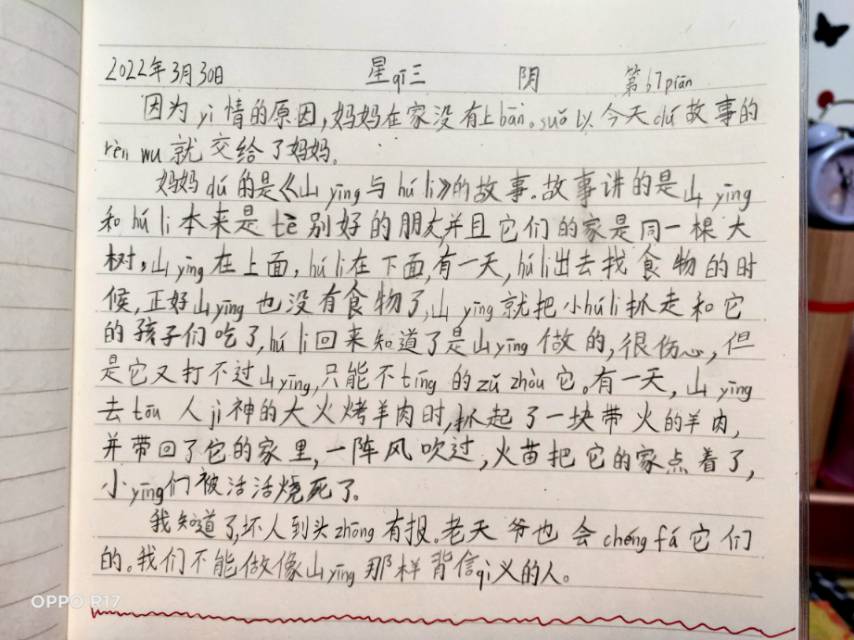 2022年3月30日 星qī三 阴 第67piān
因为yì情的原因,妈妈在家没有上bān。suǒ以今天dú故事的
rèn wu就交给了妈妈。
妈妈dú的是《山yīng与hú li》的故事。故事讲的是山yīng
和hú li本来是tè别好的朋友,并且它们的家是同一棵大
树,山yīng在上面,hú li在下面,有一天,hú li出去找食物的时
候,正好山yīng也没有食物了,山yīng就把小hú li抓走和它
的孩子们吃了,hú li回来知道了是山yīng做的,很伤心,但
是它又打不过山yīng,只能不tíng的zǔ zhòu它。有一天,山yīng
去tōu人jì神的大火烤羊肉时,抓起了一块带火的羊肉,
并带回了它的家里,一阵风吹过,火苗把它的家点着了,
小yīng们被活活烧死了。
我知道了,坏人到头zhōng有报。老天爷也会chéng fá它们
的。我们不能做像山yīng那样背信qì义的人。
OPPO R17